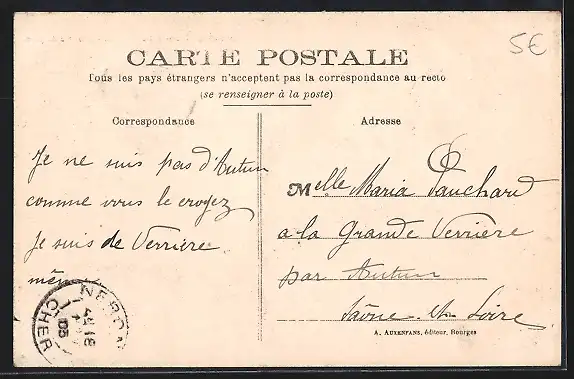 5€
CARTE POSTALE
Tous les pays étrangers n'acceptent pas la correspondance au recto
(se renseigner à la poste)
Correspondance
Adresse
Je ne suis pas d'Autun
comme vous le croyez
Je suis de Verrière
Melle Maria Pauchard
a la Grande Verrière
par Autun
Saône et Loire
A. AUXENFANS, éditeur, Bourges
CHER